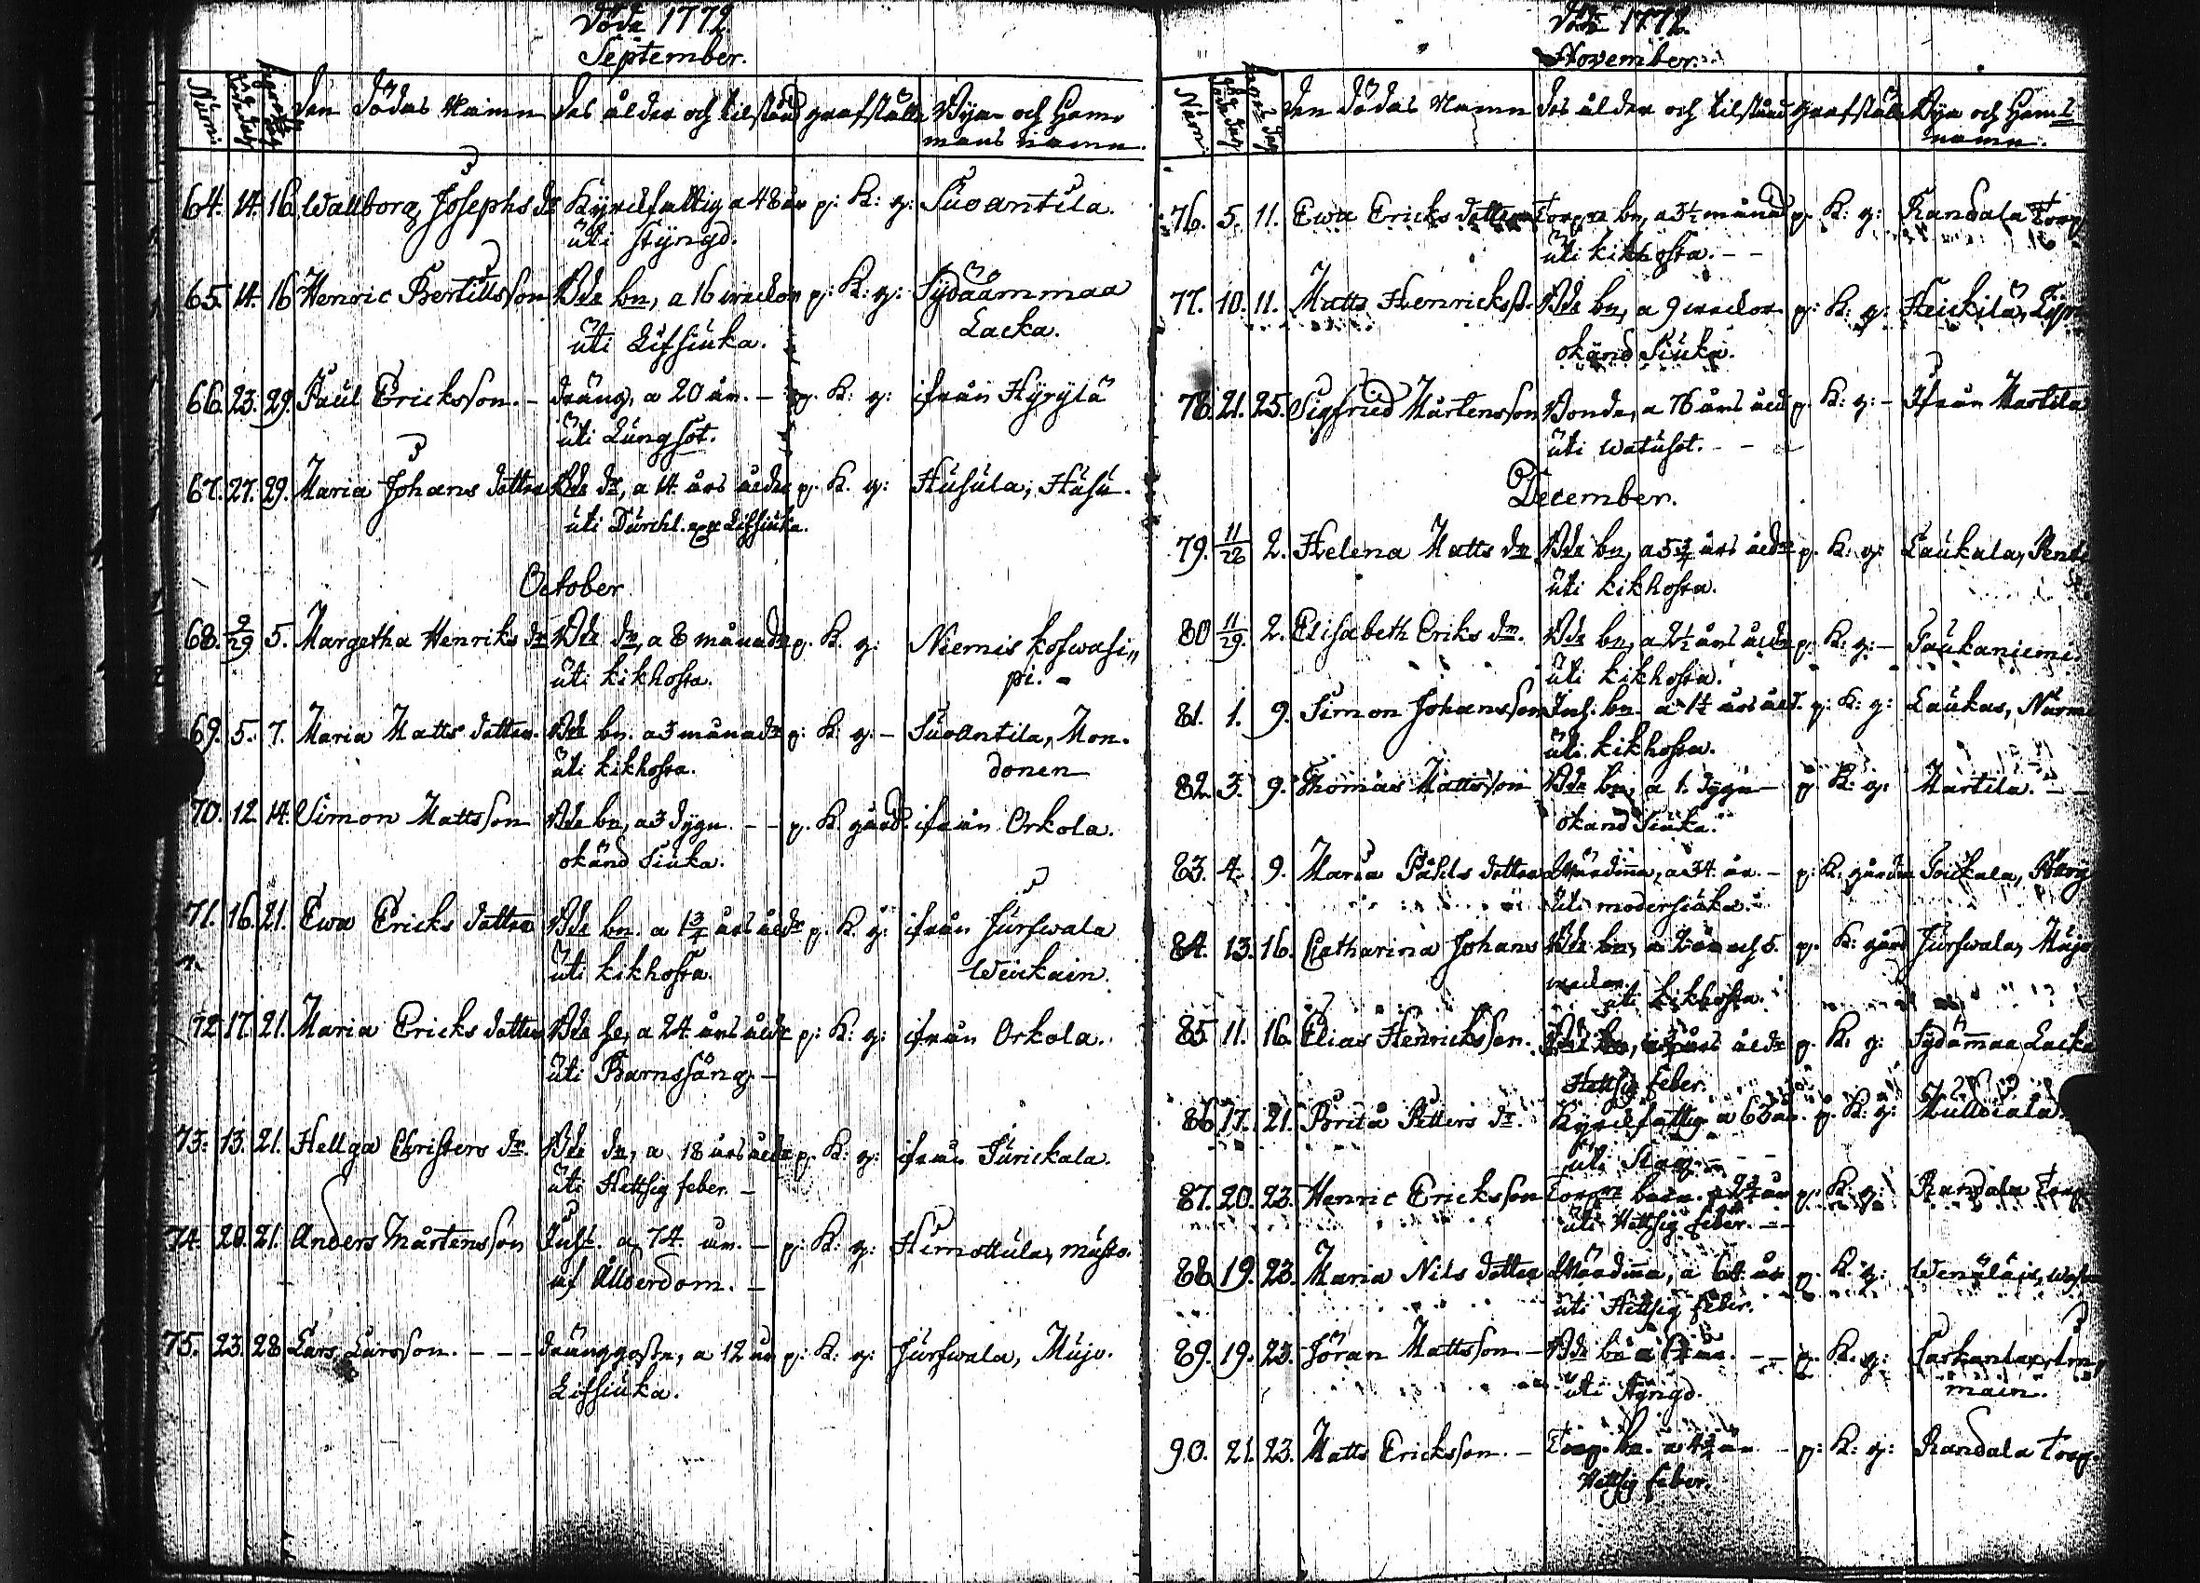 Döde 1772.
September.
Num:
den dödas Namn des ålder och tilstånd grafställe Byn och Hem-
mans namn.
64. 14. 16. Wallborg Josephs dr Kyrckfattig a 48 år p: K: g: Suoantila.
uti styngd.
65. 14. 16 Henric Bertillsson Bde bn, a 16 weckor p: K: g: Sydäämmaa
uti Lifsiuka. Lacka.
66. 23. 29. Paul Ericksson. - dräng, a 20 år. - p. K: g: ifrån Hyrylä
uti Lungsot.
67. 27. 29. Maria Johans dotter Bde dr, a 14 års ålder p. K. g: Husula, Husu.
uti Durchl. Lifsiuka.
October
68. 9/29 5. Margetha Henriks dr Bde dr, a 8 månader p. K. g: Niemis koswasi„
uti kikhosta. pi. -
69. 5. 7. Maria Matts dotter. Bde bn. a 3 månader p: K: g. - SuoAntila, Mon.
uti kikhosta. donen
70. 12. 14. Simon Mattsson Bde bn, a 3 dygn. - - p. K. gård. ifrån Orkola.
okänd Siuka.
71. 16. 21. Ewa Ericks dotter Bde bn. a 1 3/4 års ålder p. K. g: ifrån Jurswala
uti kikhosta. Weickain.
72. 17. 21. Maria Ericks dotter Bde he, a 24 års ålder p: K: g: ifrån Orkola.
uti Barnssäng. -
73. 13. 21. Hellga Christers dr. Bde dr, a 18 års ålder p. K: g: ifrån Turickala.
uti Hettsig feber. -
74. 20. 21. Anders Mårtensson Inh. a 74 år. - p: K: g: Himottula, musto.
af Ållderdom. -
75. 23. 28 Lars Larsson. - - - dränggosse, a 12 år p: K: g: Jurswala, Mujo.
Lifsiuka.
Döde 1772.
November.
Num:
den dödas Namn des ålder och tilstånd grafställe Byn och Hems
namn.
76. 5. 11. Ewa Ericks dotter Torpa bn, a 3½ månad p. K: g: Randala Torp
uti kikhosta. - -
77. 10. 11. Matts Henrickss. Bde bn, a 9 weckor p: K: g: Heickilä,
okänd Siuka.
78. 21. 25. Sigfried Mårtensson Bonde, a 76 års åld p. K: g: - Ifrån Martila
uti watusot. - - -
December.
79. 11/28 2. Helena Matts dr. Bde bn, a 5 3/4 års ålder p. K: g: Laukala,
uti kikhosta.
80 11/29. 2. Elisabeth Eriks dr. Bde bn, a 2½ års ålder p: K: g: - Paukaniemi.
uti kikhosta.
81. 1. 9. Simon Johansson Inh. bn. a 1½ års åld. p: K: g: Laukas,
uti kikhosta.
82. 3. 9. Thomas Mattsson Bde bn, a 1. dygn - p: K: g: Martila. - -
okänd Siuka.
83. 4. 9. Maria Påhls dotter Wärdina, a 34. år. - p: K: gården
uti modersiuka.
84. 13. 16. Catharina Johans Bde bn, a 2 år och 5. p. K: gård Jurswala, Mujo
weckor uti kikhosta.
85 11. 16. Elias Henricksson. Bde bn, års ålder p. K: g: Sydämaa Lacka
Hettsig feber.
86 17. 21. Brita Petters dr. Kyrckfattig a 63 år. p: K: g:
uti Slag. - - -
87. 20. 23. Henric Ericksson Torpre barn. a år p: K: g: Randala Torp
uti Hettsig feber. - -
88. 19. 23. Maria Nils dotter Wärdina, a 64. år p. K. g:
uti Hettsig feber.
89. 19. 23. Jöran Mattsson - Bde bn a år. - - p. K. g:
uti Styngd. main.
90. 21. 23. Matts Ericksson. - Torp. bn. a år - p: K: g: Randala Torp.
Hettsig feber.